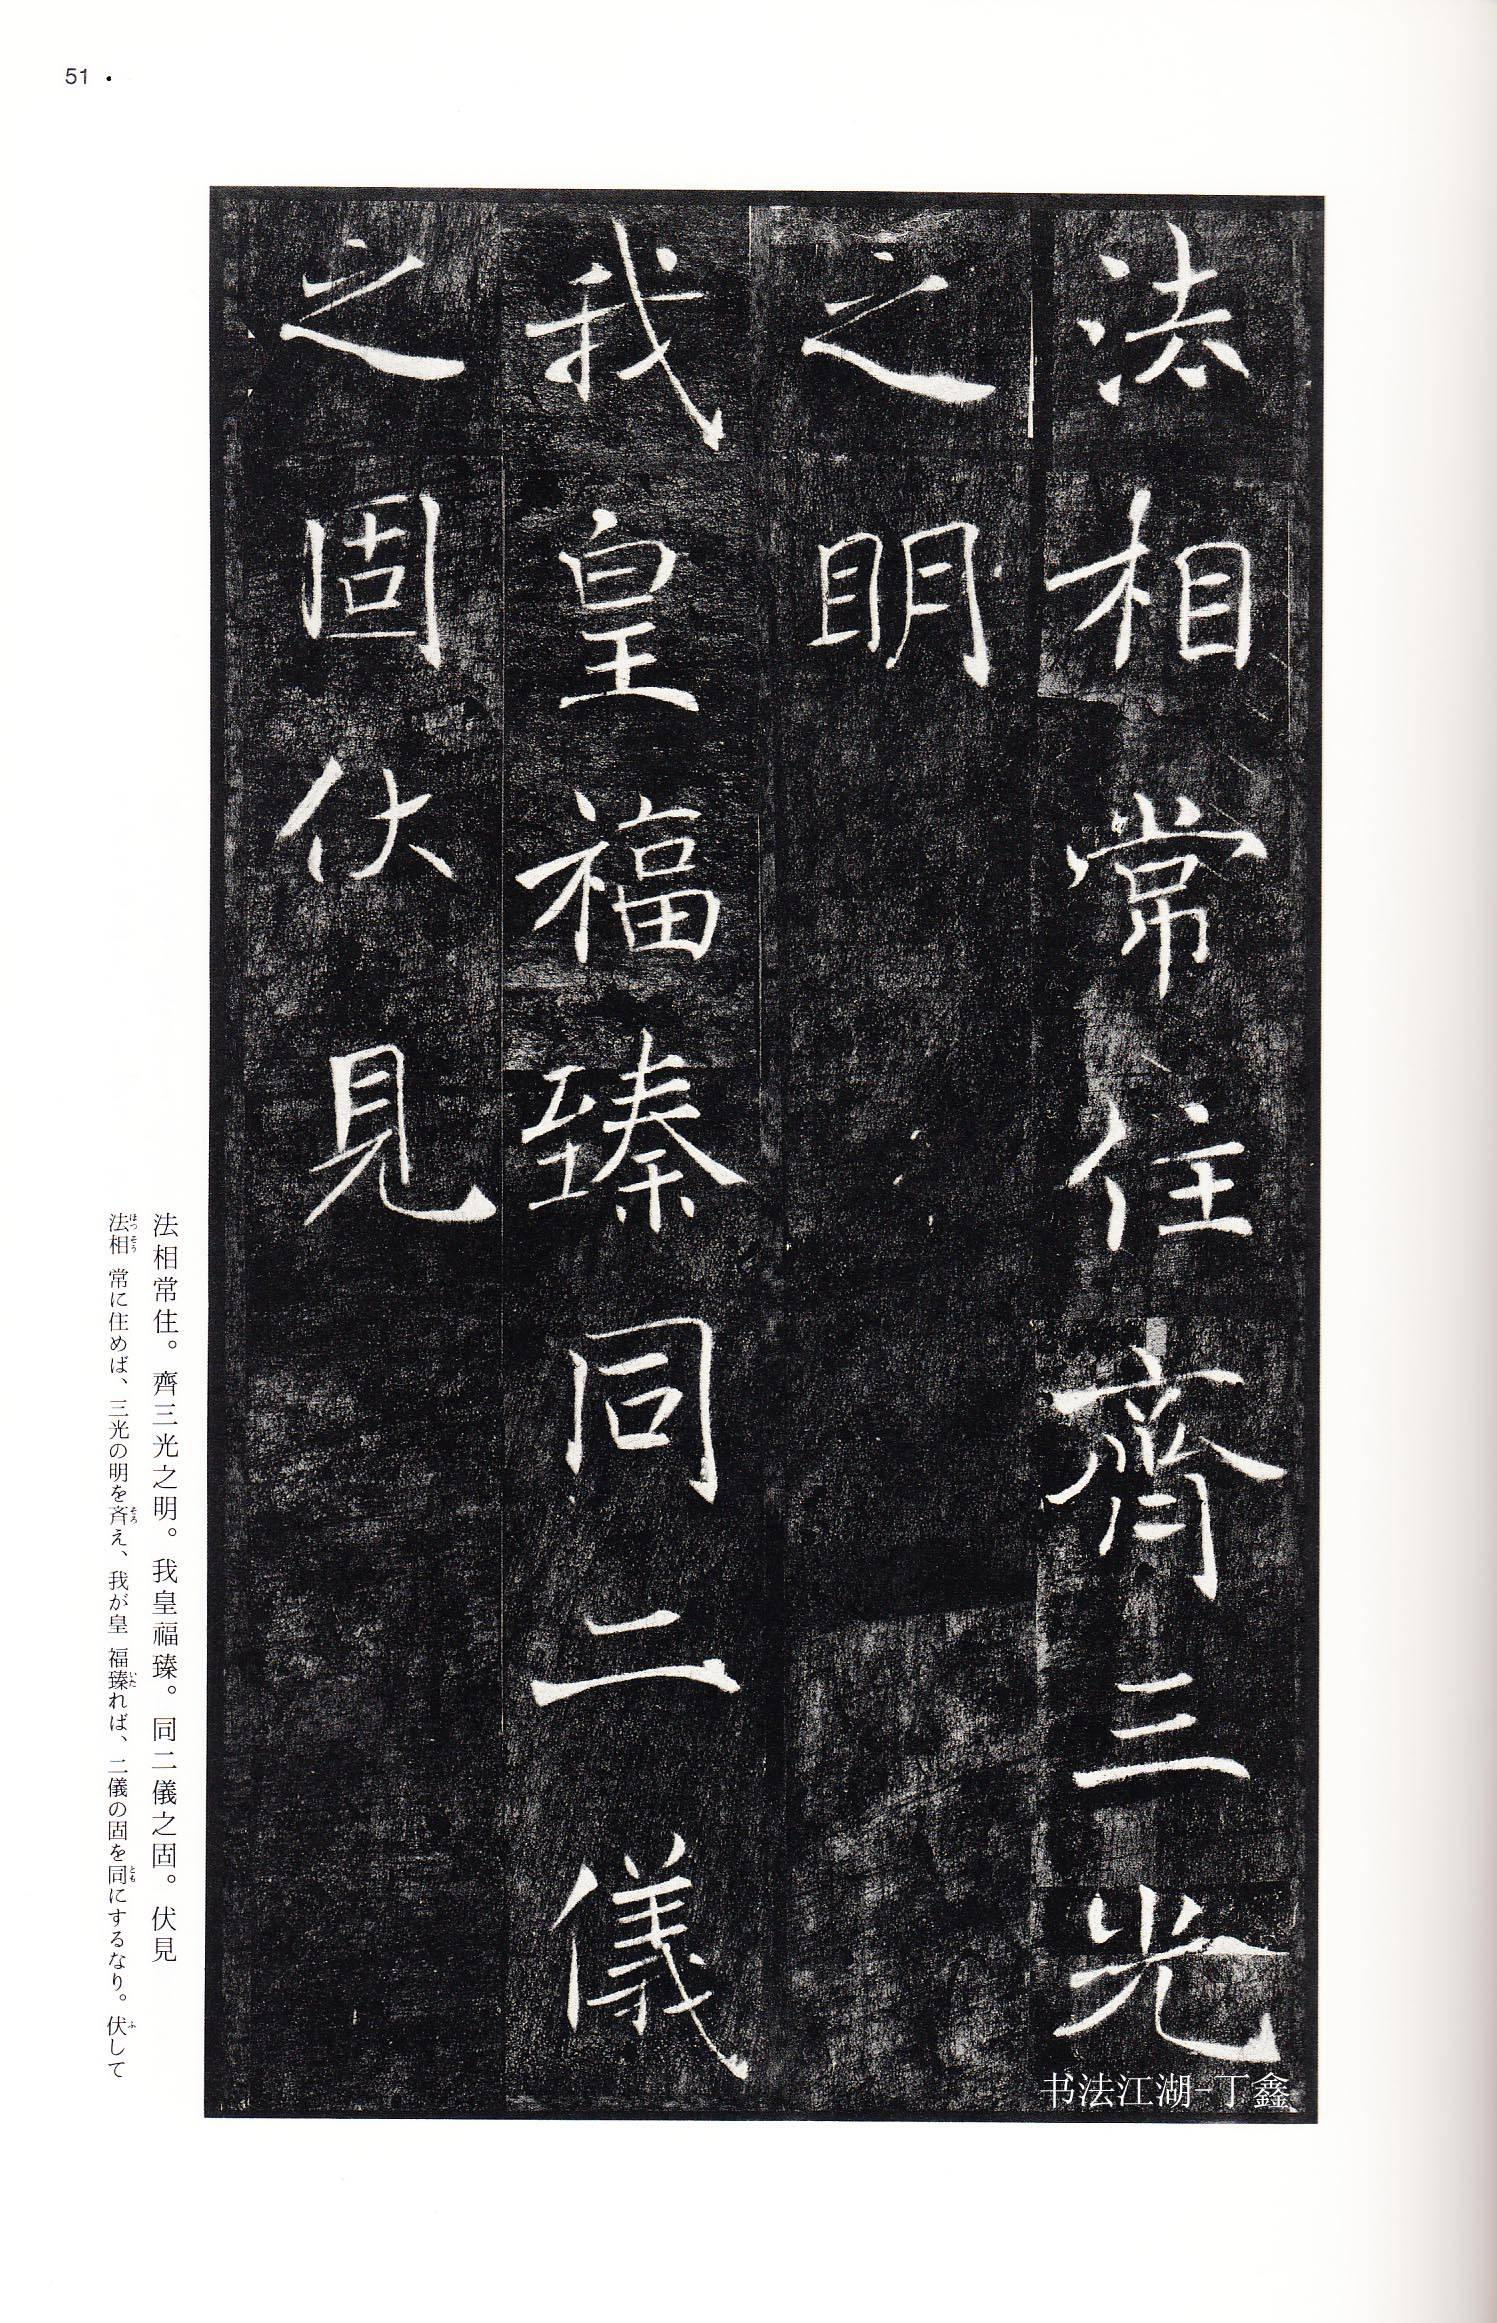 51 •
法相常住齊三光
之明
我皇福臻同二儀
之固伏見
书法江湖-丁鑫
法相常住。齊三光之明。我皇福臻。同二儀之固。伏見
法相常に住めば、三光の明を斉え、我が皇福臻れば、二儀の固を同にするなり。伏して
ほっそう
そろ
いた
とも
ふ